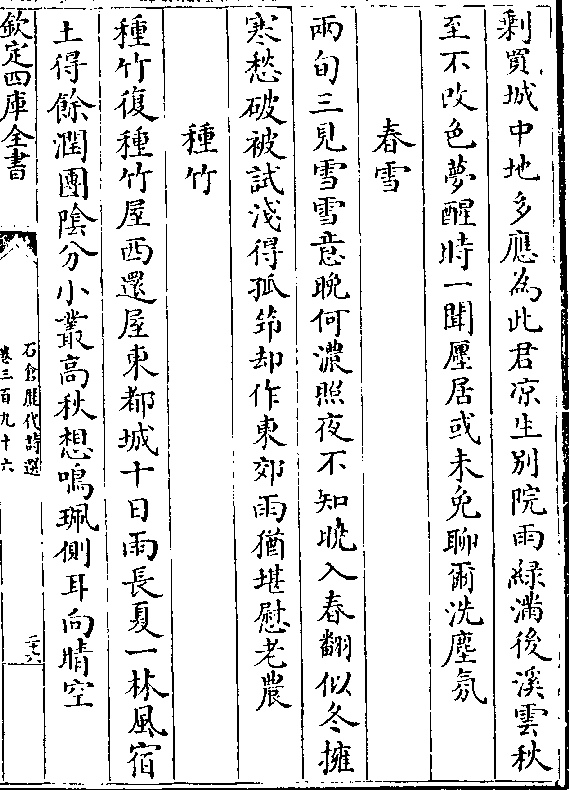 剩買城中地多應為此君凉生別院雨緑滿後溪雲秋
至不改色夢醒時一聞㕓居或未免聊爾洗塵氛
春雪
兩旬三見雪雪意晚何濃照夜不知曉入春翻似冬擁
寒愁破被試淺得孤笻却作東郊雨猶堪慰老農
種竹
種竹復種竹屋西還屋東都城十日雨長夏一林風宿
土得餘潤團隂分小叢高秋想鳴珮側耳向晴空
欽定四庫全書
石倉歴代詩選
卷三百九十六
二十六